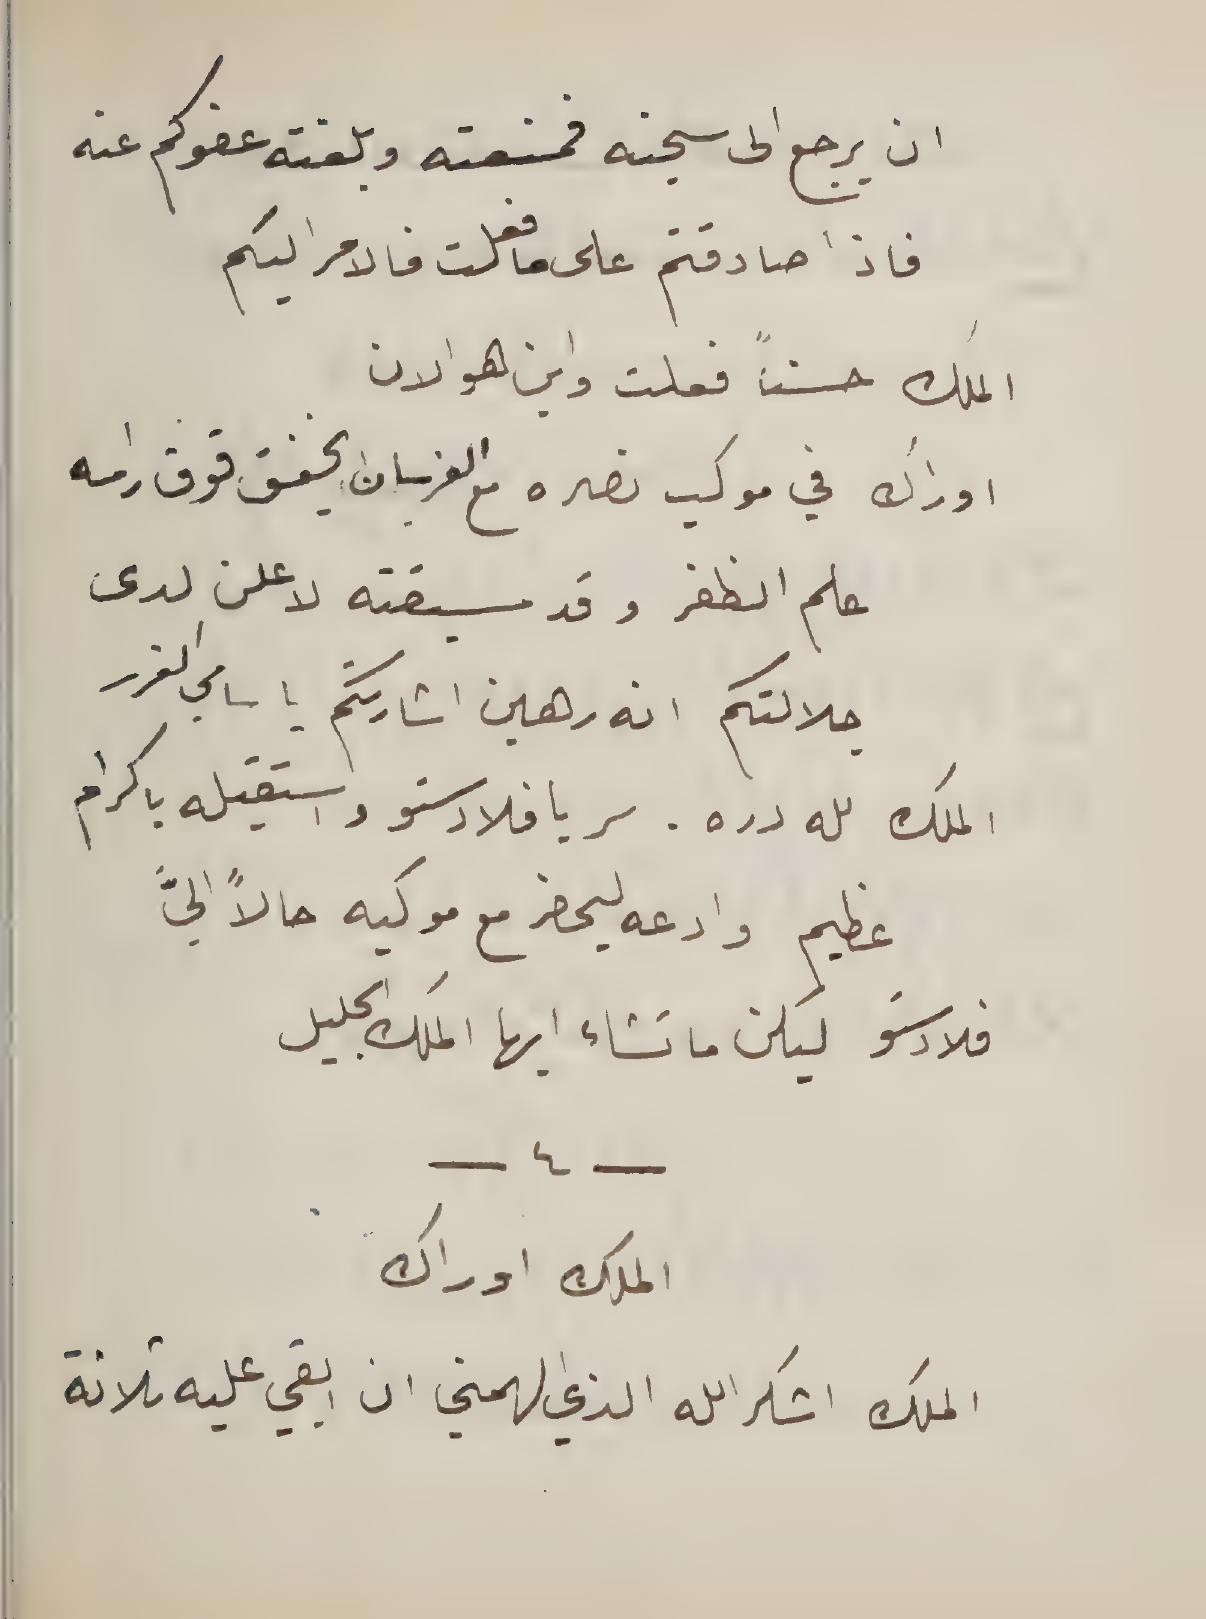 ان يرجع الى سجنه فمنعته وبلغته عفوكم عنه
فاذا صادقتم على ما فعلت فالامر اليكم
الملك حسناً فعلت واين هو الان
اوراك في موكب نصره مع الفرسان يخفق فوق راسه
علم الظفر وقد سبقته لاعلن لدى
جلالتكم انه رهين اشارتكم يا سامي
الملك لله دره . سر يا فلادستو واستقبله باكرام
عظيم وادعه ليحضر مع موكبه حالاً اليَّ
فلادستو ليكن ما تشاء ايها الملك الجليل
— ٤ —
الملك اوراك
الملك اشكر الله الذي الهمني ان ابقي عليه ثلاثة